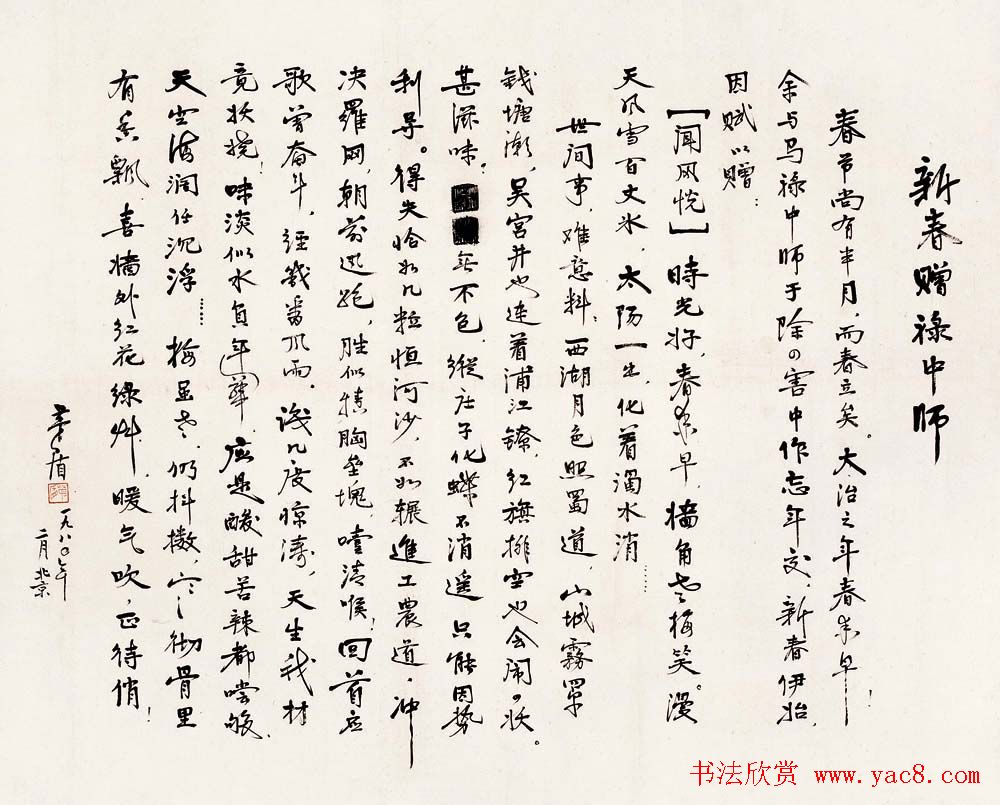 新春赠禄中师
春节尚有半月，而春立矣。大治之年春来早！
余与马禄中师于除四害中作忘年交，新春伊始，
因赋以赠：
【闻风悦】时光好，春来早，墙角老梅笑。漫
天风雪百丈冰，太阳一出，化着浊水消……
世间事，难意料：西湖月色照蜀道，山城雾罩
钱塘潮，吴宫井也连着浦江镣，红旗排空也会闹四妖。
甚滋味？无不包，纵庄子化蝶不消遥，只能因势
利导。得失恰如几粒恒河沙，不如辗进工农道，冲
决罗网，朝前迅跑，胜似积胸垒块，噎清喉！回首应
歌曾奋斗，经几番风雨。识几度惊涛，天生我材
竟妖娆！味淡似水负年华，应是酸甜苦辣都尝够，
天空海阔任沉浮……梅虽老，仍抖擞，彻骨里
有香飘，喜墙外红花绿草，暖气吹，正待俏！
茅盾
一九八〇年
二月北京
书法欣赏 www.yac8.com